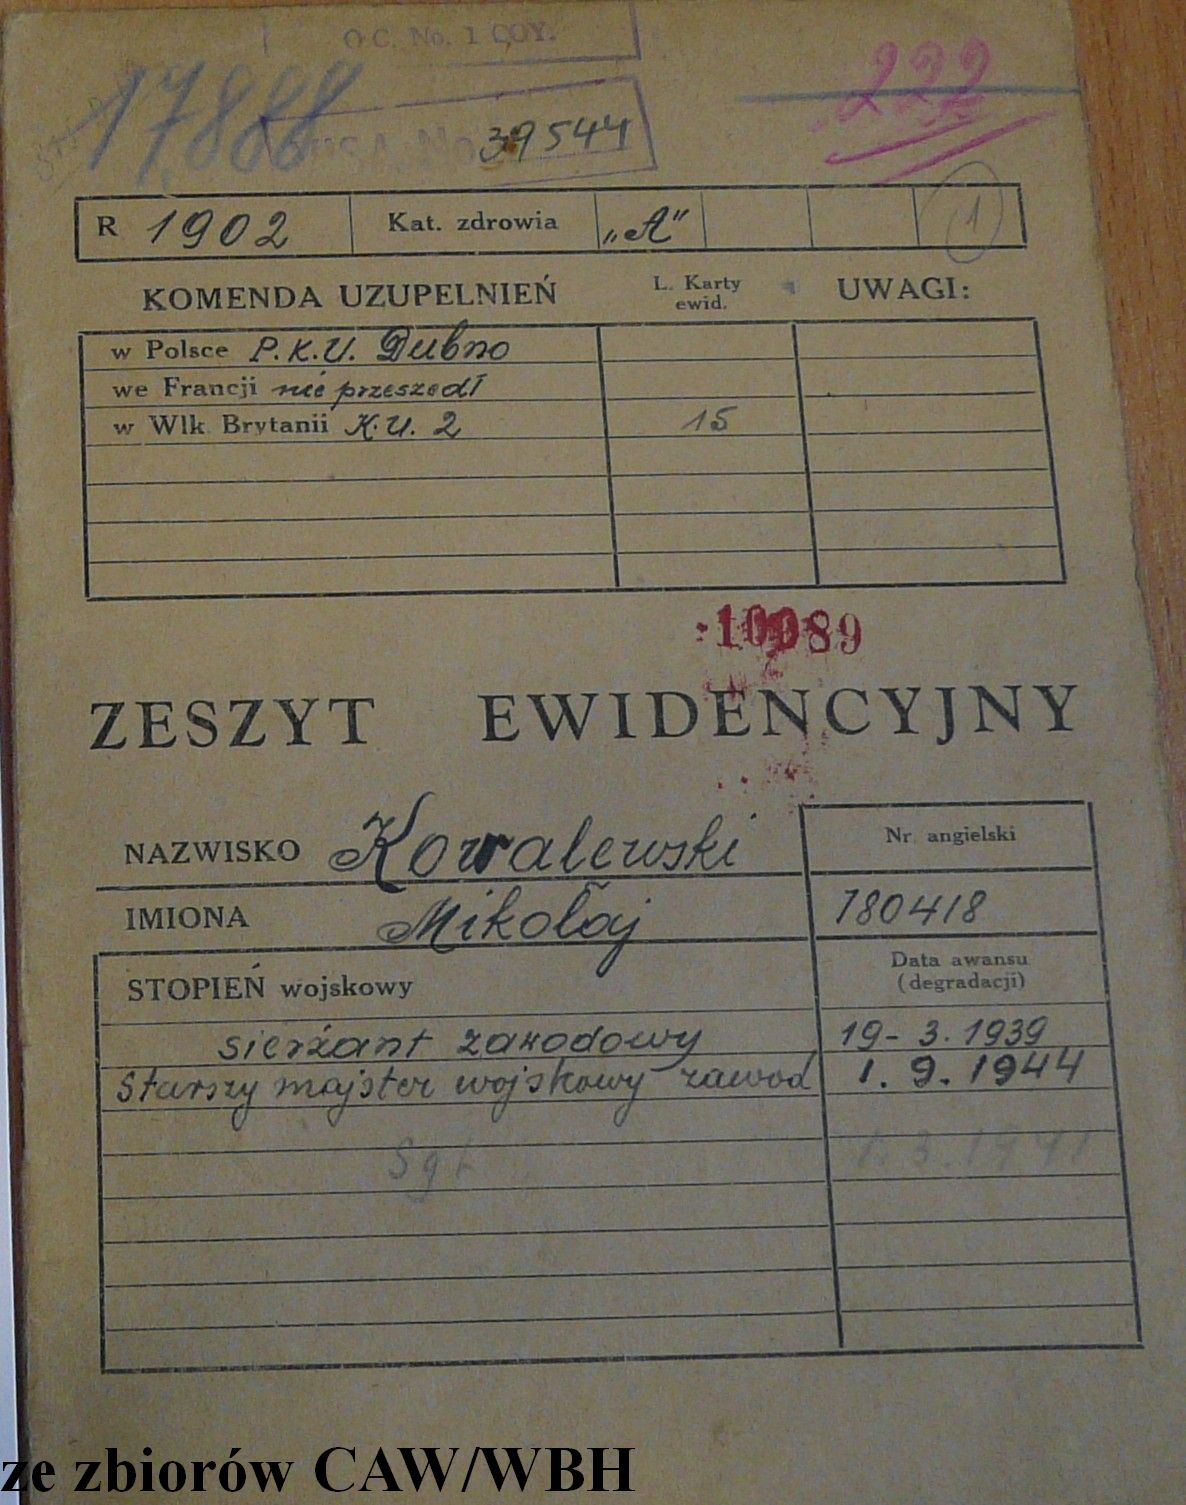 O.C. No. 1 COY.
17.888
39544
222
R 1902 Kat. zdrowia „A” 1
KOMENDA UZUPELNIEŃ L. Karty ewid. UWAGI:
w Polsce P.K.U. Dubno
we Francji nie przeszedł
w Wlk. Brytanii K.U. 2 15
10089
ZESZYT EWIDENCYJNY
NAZWISKO Kowalewski Nr. angielski
IMIONA Mikołaj 780418
STOPIEŃ wojskowy Data awansu (degradacji)
sierżant zawodowy 19-3.1939
Starszy majster wojskowy zawod 1.9.1944
Sgt 1.3.1941
ze zbiorów CAW/WBH